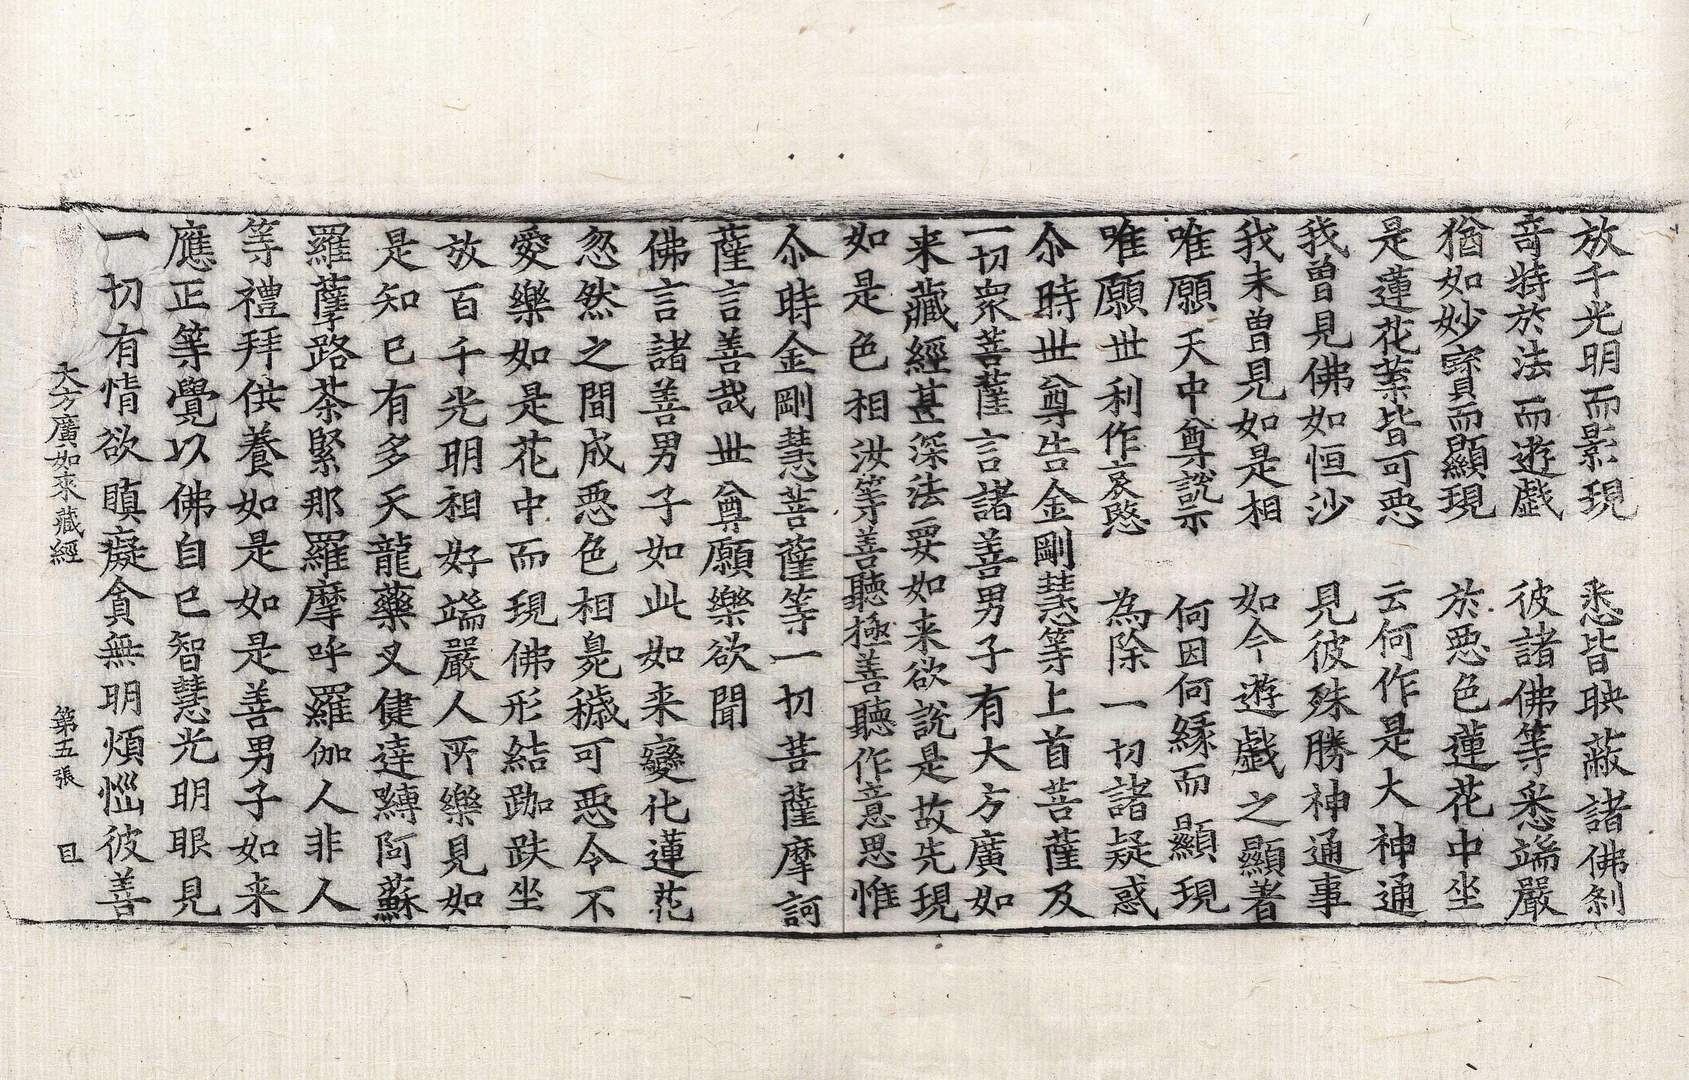 放千光明而影現　悉皆映蔽諸佛刹
竒特於法而遊戯　彼諸佛等悉端嚴
猶如妙寳而顯現　於惡色蓮花中坐
是蓮花葉皆可惡　云何作是大神通
我曾見佛如恒沙　見彼殊勝神通事
我未曽見如是相　如今遊戯之顯著
唯願天中尊說示　何因何縁而顯現
唯願世利作哀愍　為除一切諸疑惑
尒時世尊告金剛慧等上首菩薩及
一切衆菩薩言諸善男子有大方廣如
来藏經甚深法要如来欲說是故先現
如是色相汝等善聽極善聽作意思惟
尒時金剛慧菩薩等一切菩薩摩訶
薩言善哉世尊願樂欲聞
佛言諸善男子如此如来變化蓮花
忽然之間成惡色相臰穢可惡令不
愛樂如是花中而現佛形結跏趺坐
放百千光明相好端嚴人所樂見如
是知已有多天龍藥叉健達嚩阿蘇
羅蘖路荼緊那羅摩呼羅伽人非人
等禮拜供養如是如是善男子如来
應正等覺以佛自已智慧光明眼見
一切有情欲瞋癡貪無明煩惱彼善
大方廣如来藏經　第五張